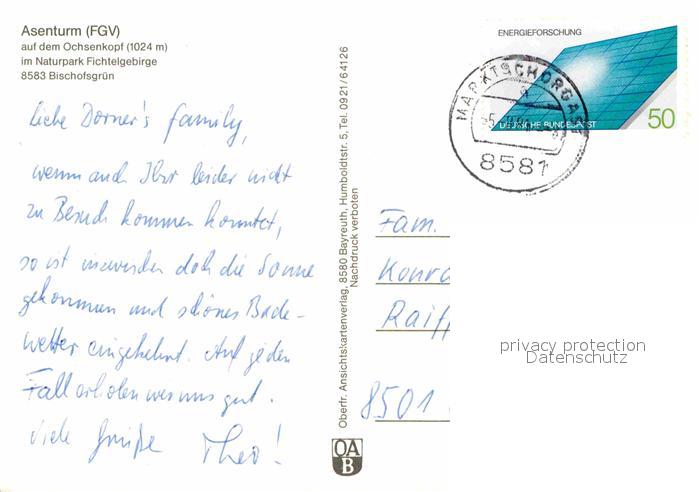 Asenturm (FGV)
auf dem Ochsenkopf (1024 m)
im Naturpark Fichtelgebirge
8583 Bischofsgrün
Liebe Dorner's family,
wenn auch Ihr leider nicht
zu Besuch kommen konntet,
so ist inzwischen doch die Sonne
gekommen und schönes Bade-
wetter eingekehrt. Auf jeden
Fall erholen wir uns gut.
Viele Grüße Theo!
Oberfr. Ansichtskartenverlag, 8580 Bayreuth, Humboldtstr. 5, Tel. 0921/64126
Nachdruck verboten
OA
B
ENERGIEFORSCHUNG
DEUTSCHE BUNDESPOST
50
MARKTSCHORGAST
8581
Fam.
Konra
Raiff
8501
privacy protection
Datenschutz